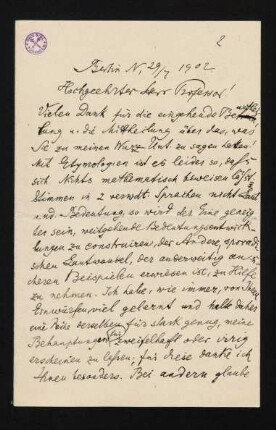 2
Berlin N, 29/7 1902
Hochgeehrter Herr Professor!
Vielen Dank für die eingehende
und die Mittheilung über das, was
Sie zu meinen Wurz. Unt. zu sagen haben!
Mit Etymologien ist es leider so, daß
sich Nichts mathematisch beweisen läßt.
Stimmen in 2 verwdt. Sprachen nicht Laut
und Bedeutung so wird der Eine geneig-
ter sein, weitgehende Bedeutungsentwick-
lungen zu construiren, der Andere, sporadi-
schen Lautwandel, der anderweitig an si-
cheren Beispielen erwiesen ist, zu Hilfe
zu nehmen. Ich habe, wie immer, von Ihren
Einwürfen viel gelernt und halte daher
eine Reihe derselben für stark genug, meine
Behauptungen für zweifelhaft oder irrig
erscheinen zu lassen; für diese danke ich
Ihnen besonders. Bei andern glaube